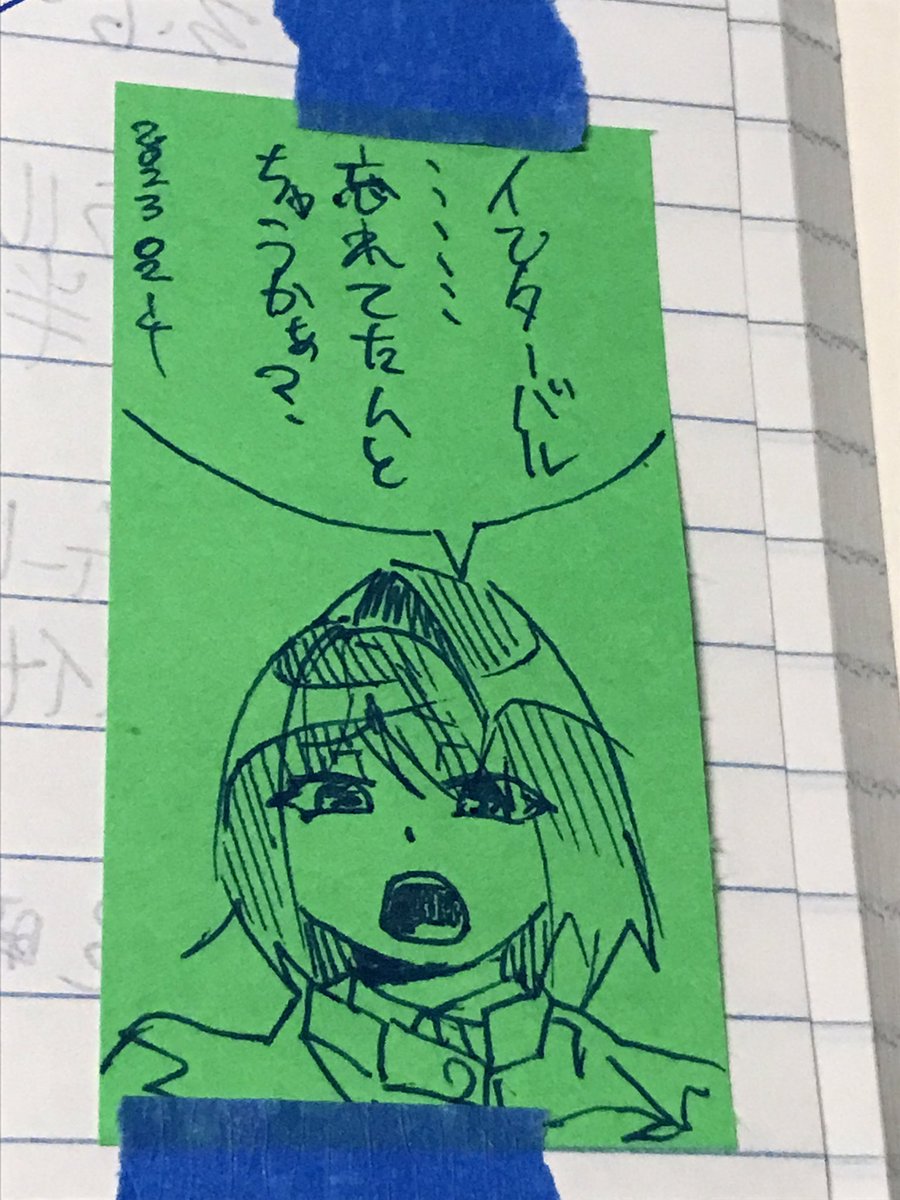 インターバル
、、、、、
忘れてたんと
ちゅうかぁマ、
2023 02 14